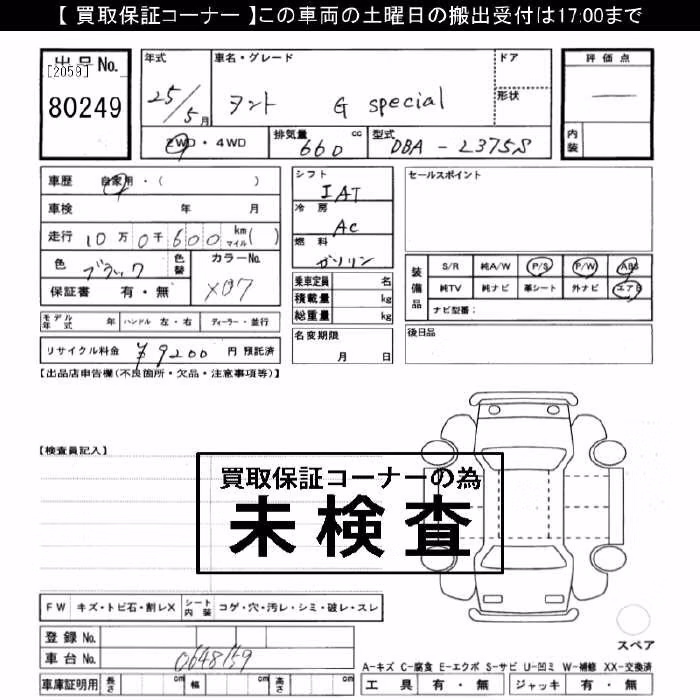 【 買取保証コーナー 】この車両の土曜日の搬出受付は17:00まで
出品No.
[2059]
80249
年式
25/5月
車名・グレード
タント G special
ドア
形状
評価点
内装
2WD・4WD
排気量 660 cc
型式 DBA - L375S
車歴 自家用・( )
車検 年 月
走行 10万0千600 km マイル( )
色 ブラック
色替
カラーNo. X07
保証書 有・無
シフト
IAT
冷房
AC
燃料
ガソリン
乗車定員 名
積載量 kg
総重量 kg
セールスポイント
装備品
S/R 純A/W P/S P/W ABS
純TV 純ナビ 革シート 外ナビ エアB
ナビ型番:
モデル年式 年 ハンドル 左・右 ディーラー・並行
名変期限
月 日
後日品
リサイクル料金 ¥9200 円 預託済
【出品店申告欄(不良箇所・欠品・注意事項等)】
【検査員記入】
買取保証コーナーの為
未検査
FW キズ・トビ石・割レX
シート内装 コゲ・穴・汚レ・シミ・破レ・スレ
登録No.
車台No. 0648159
スペア
A-キズ C-腐食 E-エクボ S-サビ U-凹ミ W-補修 XX-交換済
車庫証明用 長さ cm 幅 cm 高さ cm
工具 有・無 ジャッキ 有・無